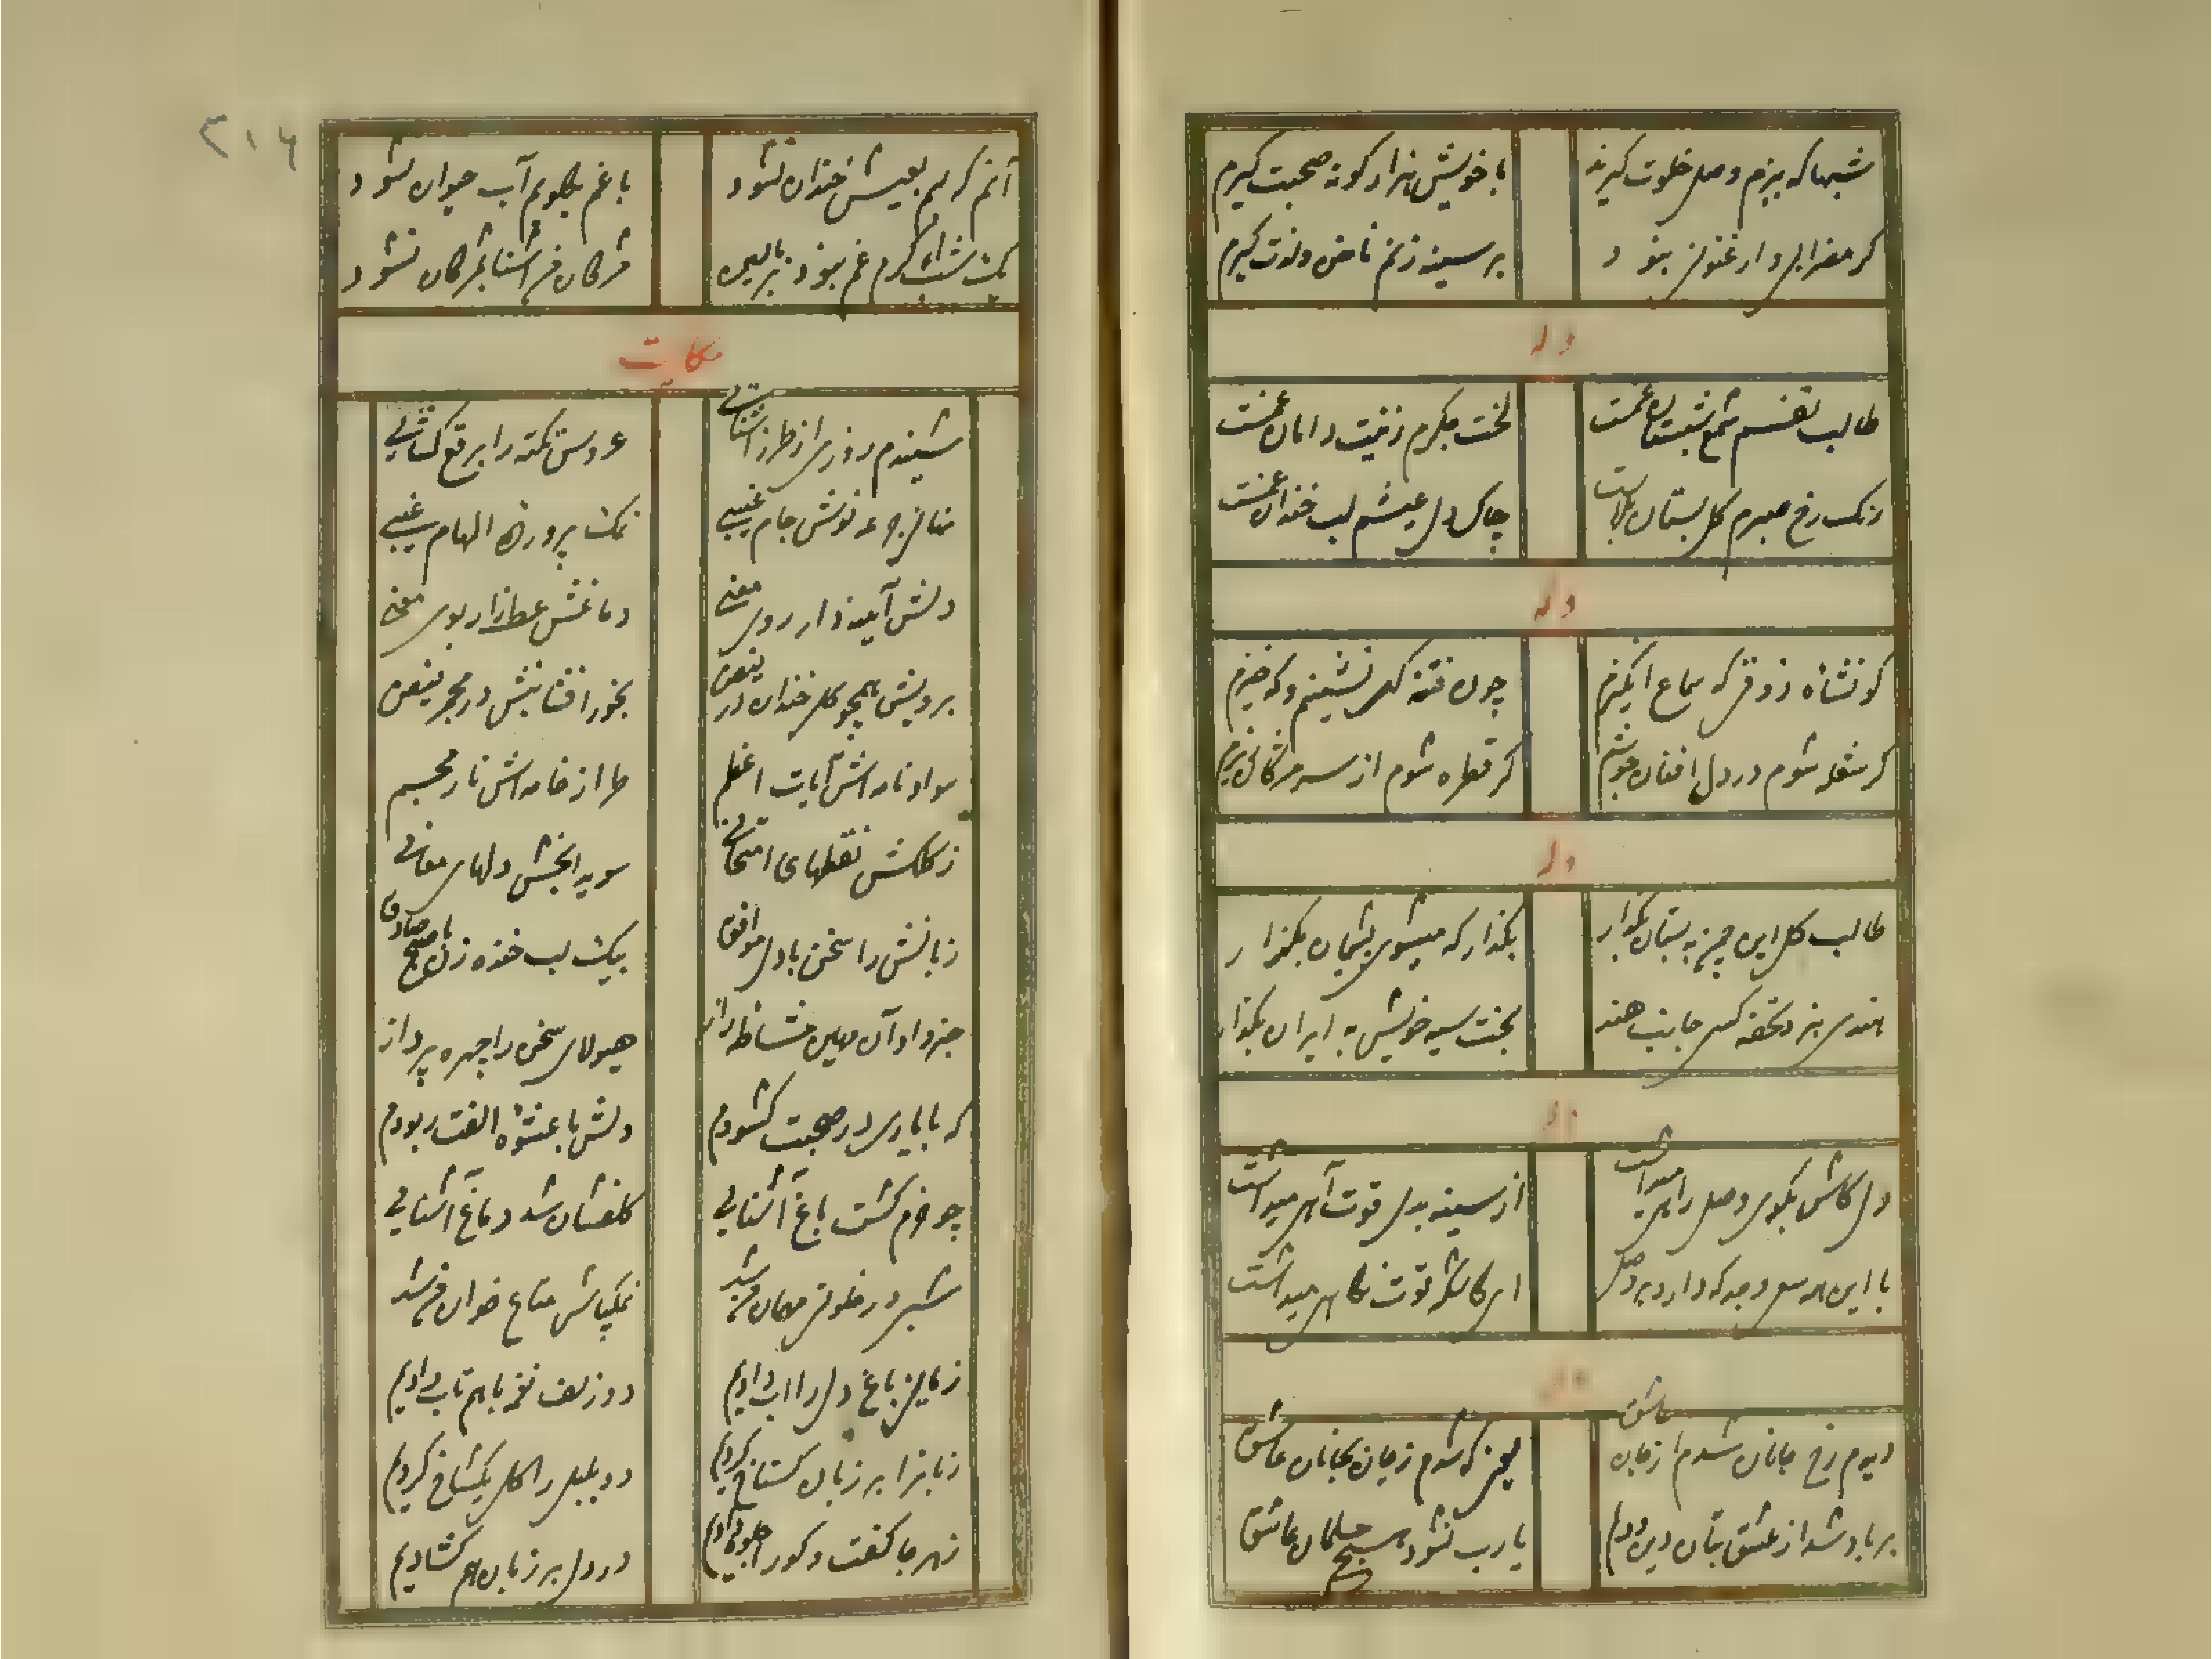 شبها که ببزم وصل خلوت گیرند
با خویش هزار گونه صحبت گیرم
بر سینه زنم ناخن و لذت گیرم
وله
طالب نفسم شمع شبستان غمست
لخت جگرم زینت دامان غمست
رنگ رخ صبرم گل بستان بلاست
چاک دل عیشم لب خندان غمست
وله
کو نشاه ذوقی که سماع انگیزم
چون فتنه گهی نشینم و گه خیزم
گر شعله شوم در دل افغان جوشم
گر قطره شوم از سر مژگان ریزم
وله
طالب گل این چمن به بستان بگذار
بگذار که میشوی پشیمان بگذار
هندو نبرد تحفه کسی جانب هند
بخت سیه خویش به ایران بگذار
وله
دل کاش بکوی وصل راهی میداشت
از سینه بدل قوت آهی میداشت
با این همه سعی وجد که دارد بر وصل
ای کاش که قوت نگاهی میداشت
وله
دیدم رخ جانان شدم از جان عاشق
یعنی که شدم ز جان بجانان عاشق
بر باد شد از عشق بتان دین و دلم
یا رب نشود هیچ مسلمان عاشق
۲۱۶
آنم که لبم بعیش خندان نشود
با غم بگلویم آب حیوان نشود
یک شب که غم نبود بر بالین
مژگان من آشنا بمژگان نشود
حکایت
شنیدم روزی از طرز آشنائی
عروس نکته را برقع گشائی
جرعه نوش جام غیبی
نمک پرورده الهام غیبی
دلش آیینه دار روی معنی
دماغش عطرزار بوی معنی
برویش همچو گل خندان در فیض
بخور افشان نیش در مجمر فیض
سواد نامه‌اش آیات اعظم
طراز خامه‌اش ناز مجسم
ز کلکش نقطهای امتحانی
سویدا بخش دلهای معانی
زبانش را سخن با دل موافق
بیک لب خنده زن با صبح صادق
خرد او آن مهین مشاطه راز
هیولای سخن را چهره پرداز
که با یاری در صحبت گشودم
دلش با عشوه الفت ربودم
چو خرم گشت باغ آشنائی
گلفشان شد دماغ آشنائی
شبی در خلوتی مهمان من شد
نمکپاش متاع خوان من شد
باغ دل را آب دادیم
دو زلف نغمه با هم تاب دادیم
زبانرا بر زبان گستاخ کردیم
دو بلبل را گل یکشاخ کردیم
ز هر جا گفت و گو را جلوه دادیم
در دل بر زبان هم گشادیم